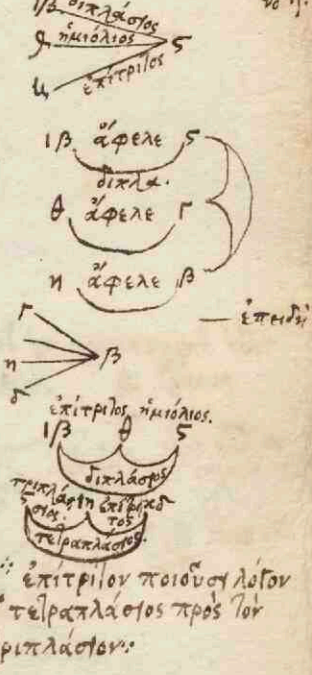 ιβ διπλάσιος
θ ἡμιόλιος ς
η ἐπίτριτος
ιβ ἄφελε ς
διπλα.
θ ἄφελε γ
η ἄφελε β
— ἐπειδὴ
γ
η β
δ
ἐπίτριτος ἡμιόλιος.
ιβ θ ς
διπλάσιος
τριπλάσιος. ἐπίτριτος
τετραπλάσιος.
ἐπίτριτον ποιοῦσι λόγον
τετραπλάσιος πρὸς τὸν
ριπλάσιον: